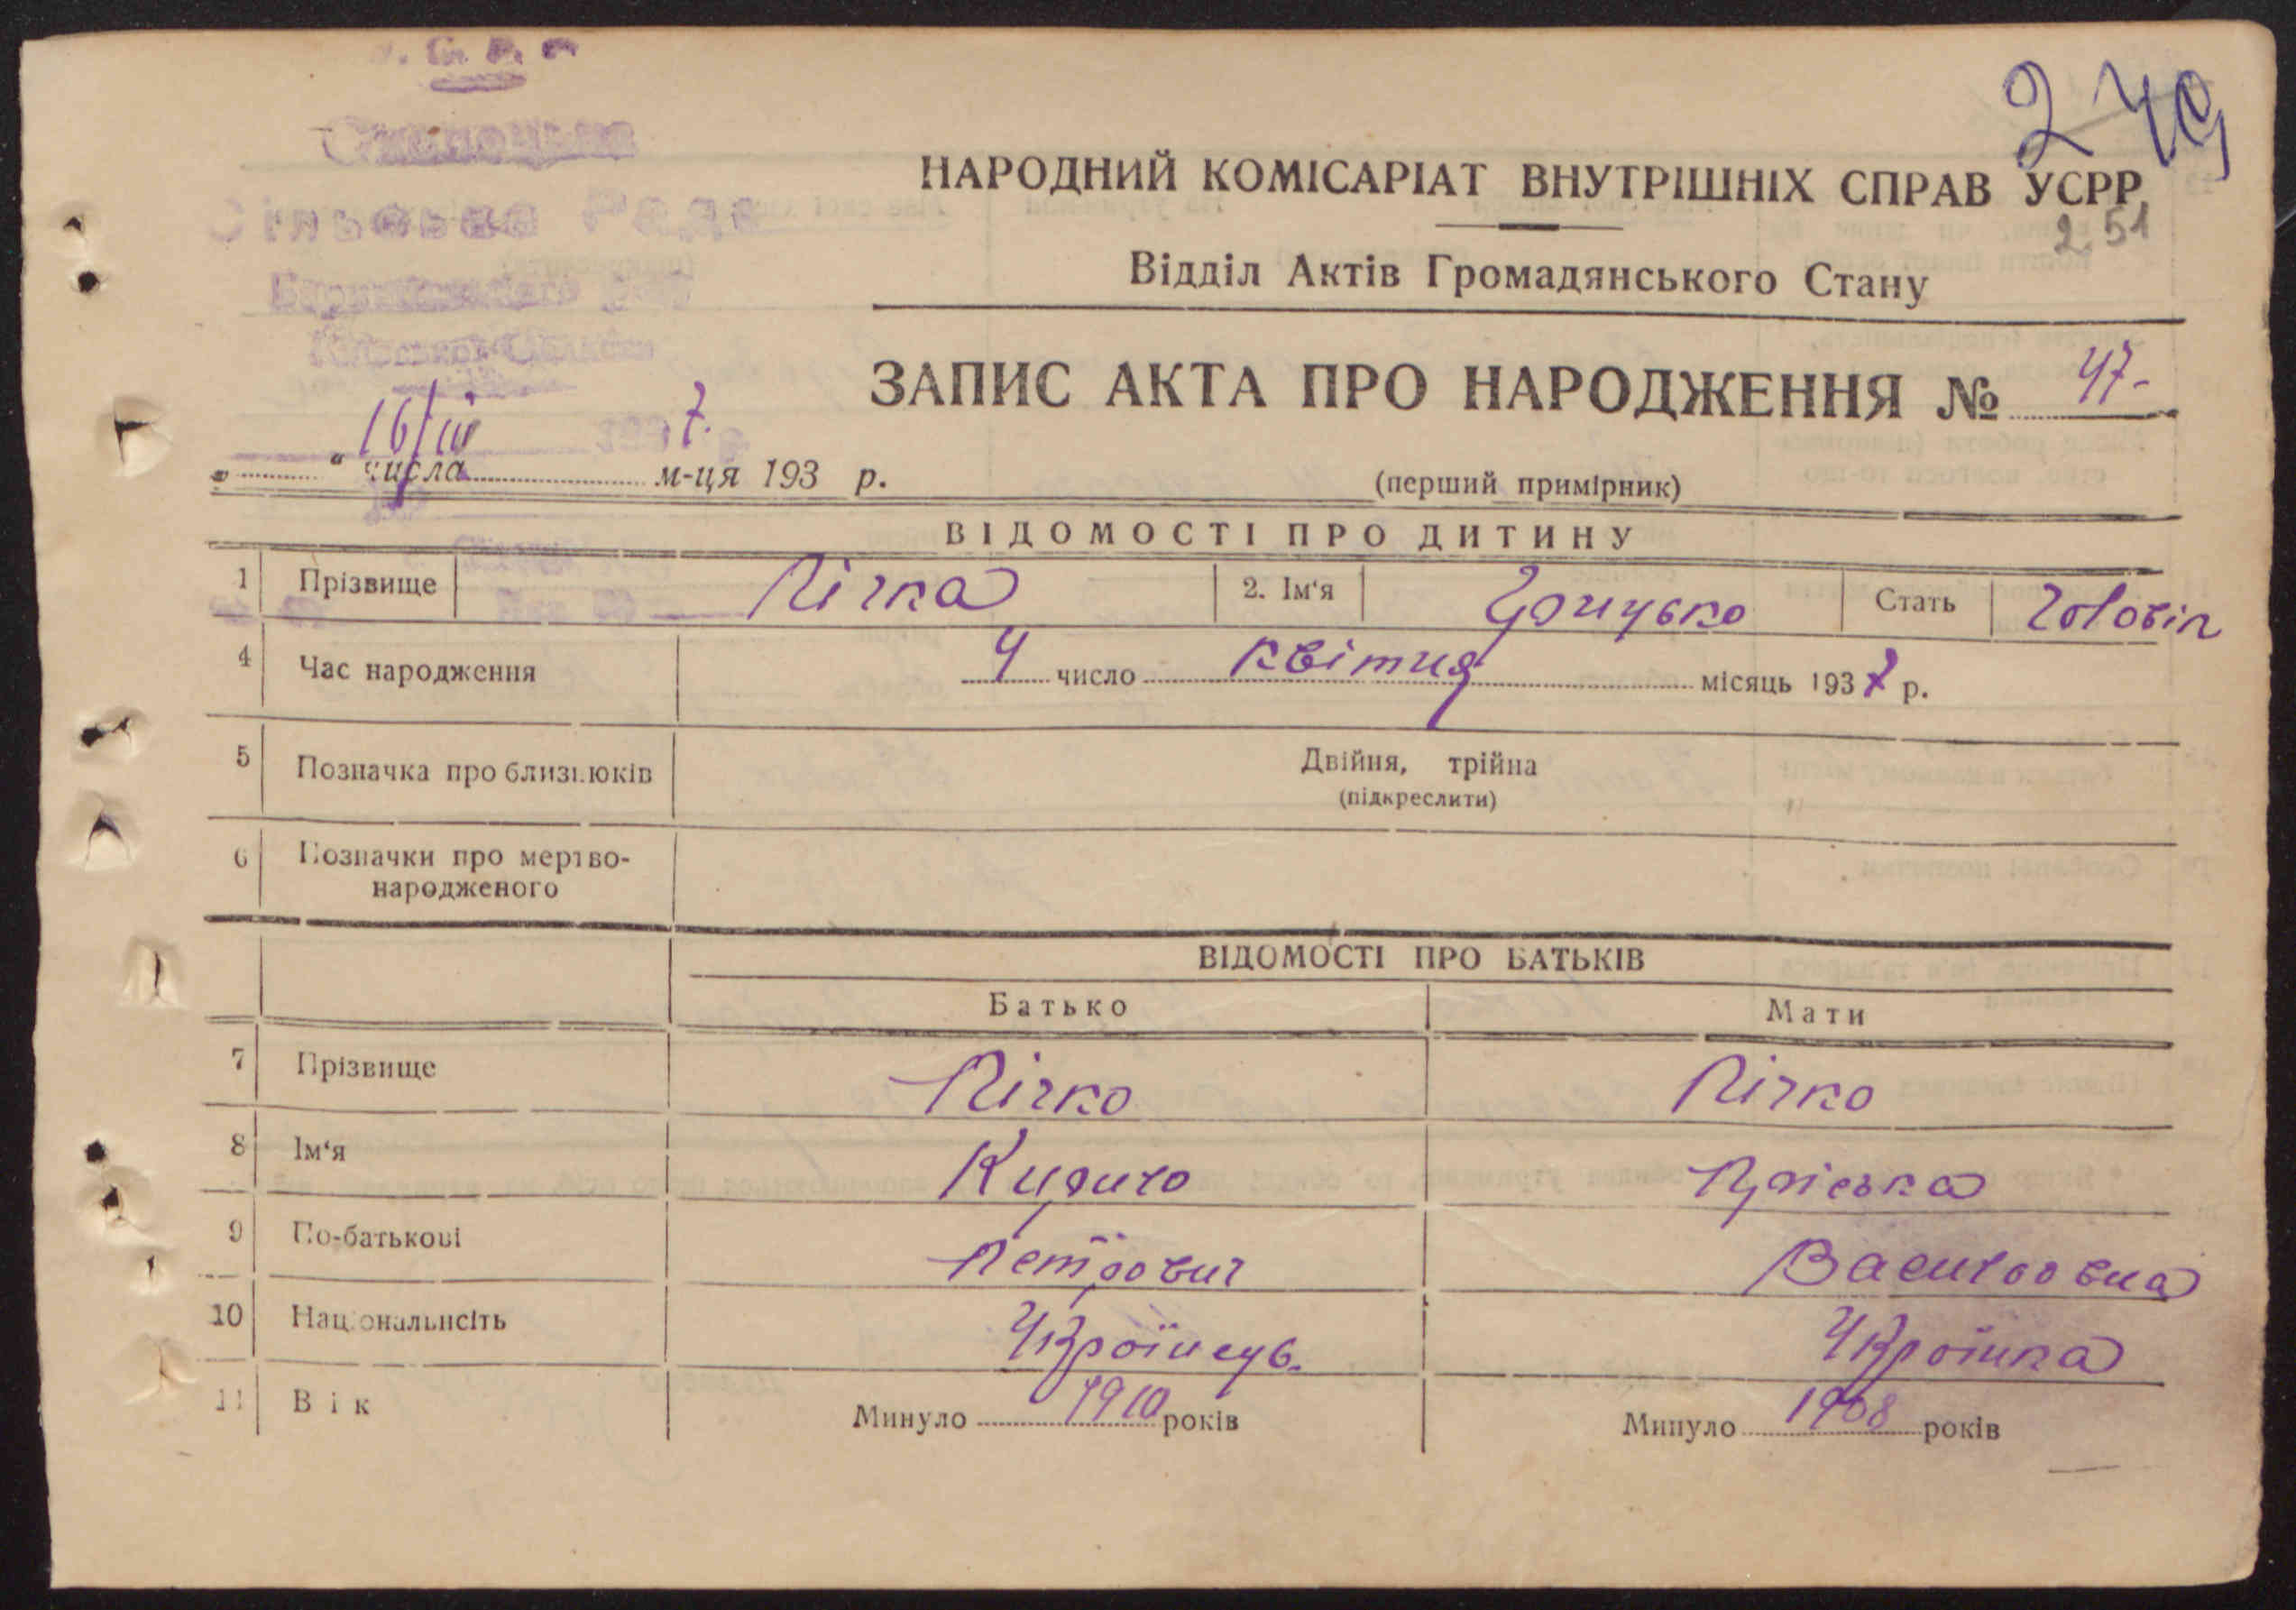 249
НАРОДНИЙ КОМІСАРІАТ ВНУТРІШНІХ СПРАВ УСРР
251
Відділ Актів Громадянського Стану
Сільська Рада
ЗАПИС АКТА ПРО НАРОДЖЕННЯ № 47-
16/III 1937.
„ “ числа м-ця 193 р.
(перший примірник)
ВІДОМОСТІ ПРО ДИТИНУ
1 Прізвище Річка 2. Ім‘я Грицько Стать Чоловік
4 Час народження 4 число квітня місяць 1937 р.
5 Позначка про близнюків Двійня, трійня
(підкреслити)
6 Позначки про мертво-
народженого
ВІДОМОСТІ ПРО БАТЬКІВ
Батько Мати
7 Прізвище Річко Річко
8 Ім‘я Кирило Пріська
9 По-батькові Петрович
10 Національнсіть Українець. Українка
11 Вік Минуло 1910 років Минуло 1908 років